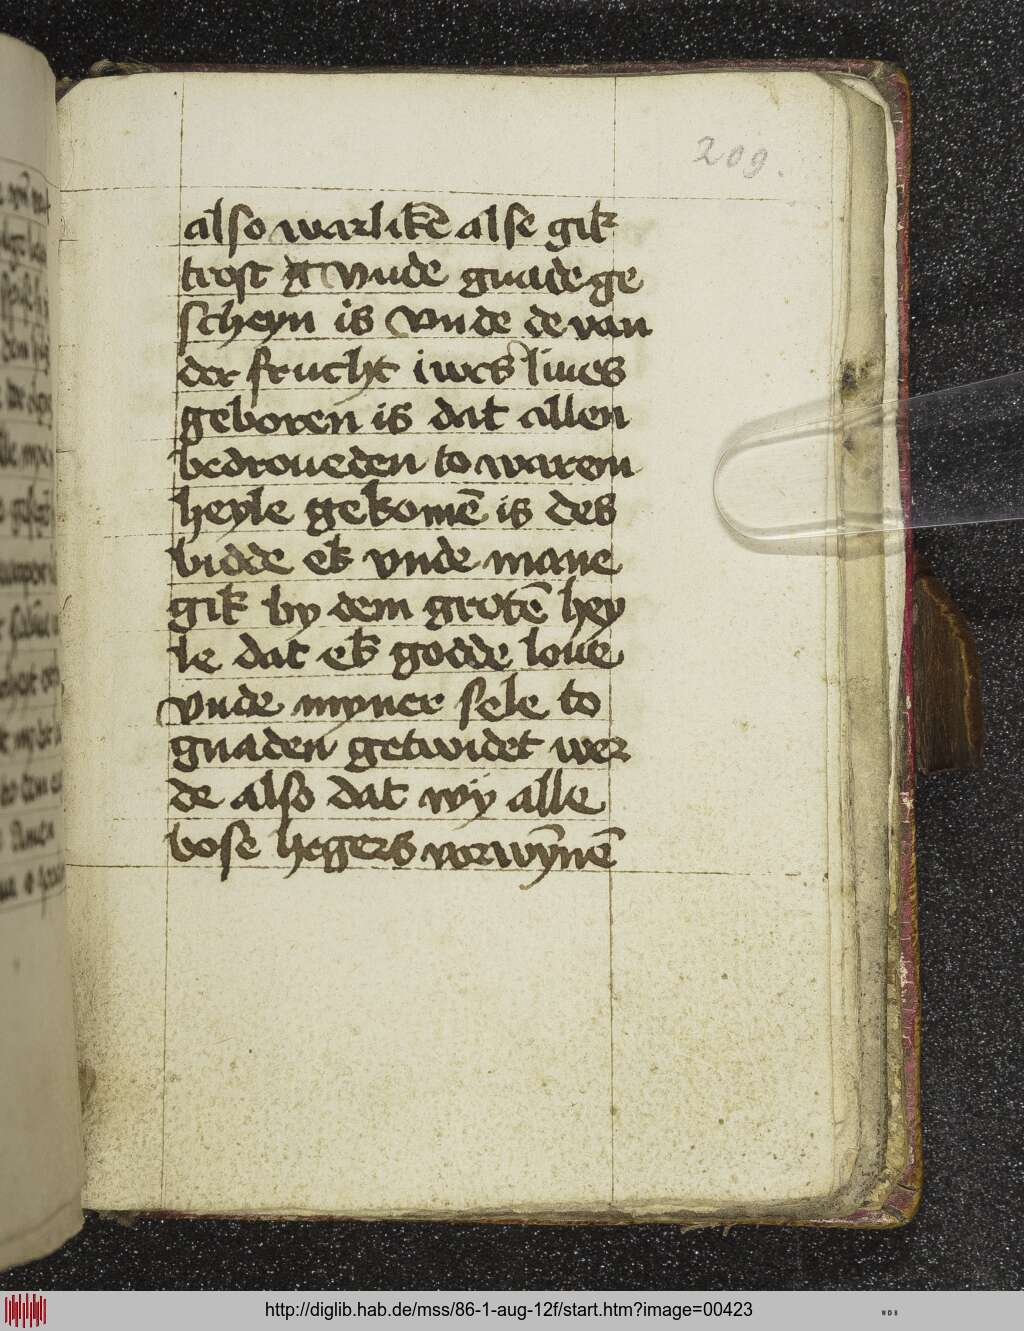 209.
also warlikē alse gik
trost vnde gnade ge
scheyn is vnde de van
der frucht iwes liues
geboren is dat allen
bedroueden to warem
heyle gekomē is des
bidde ek vnde mane
gik by dem grotē hey
le dat ek godde loue
vnde myner sele to
gnaden getwidet wer
de also dat wy alle
bose hegers vorwȳnē
http://diglib.hab.de/mss/86-1-aug-12f/start.htm?image=00423